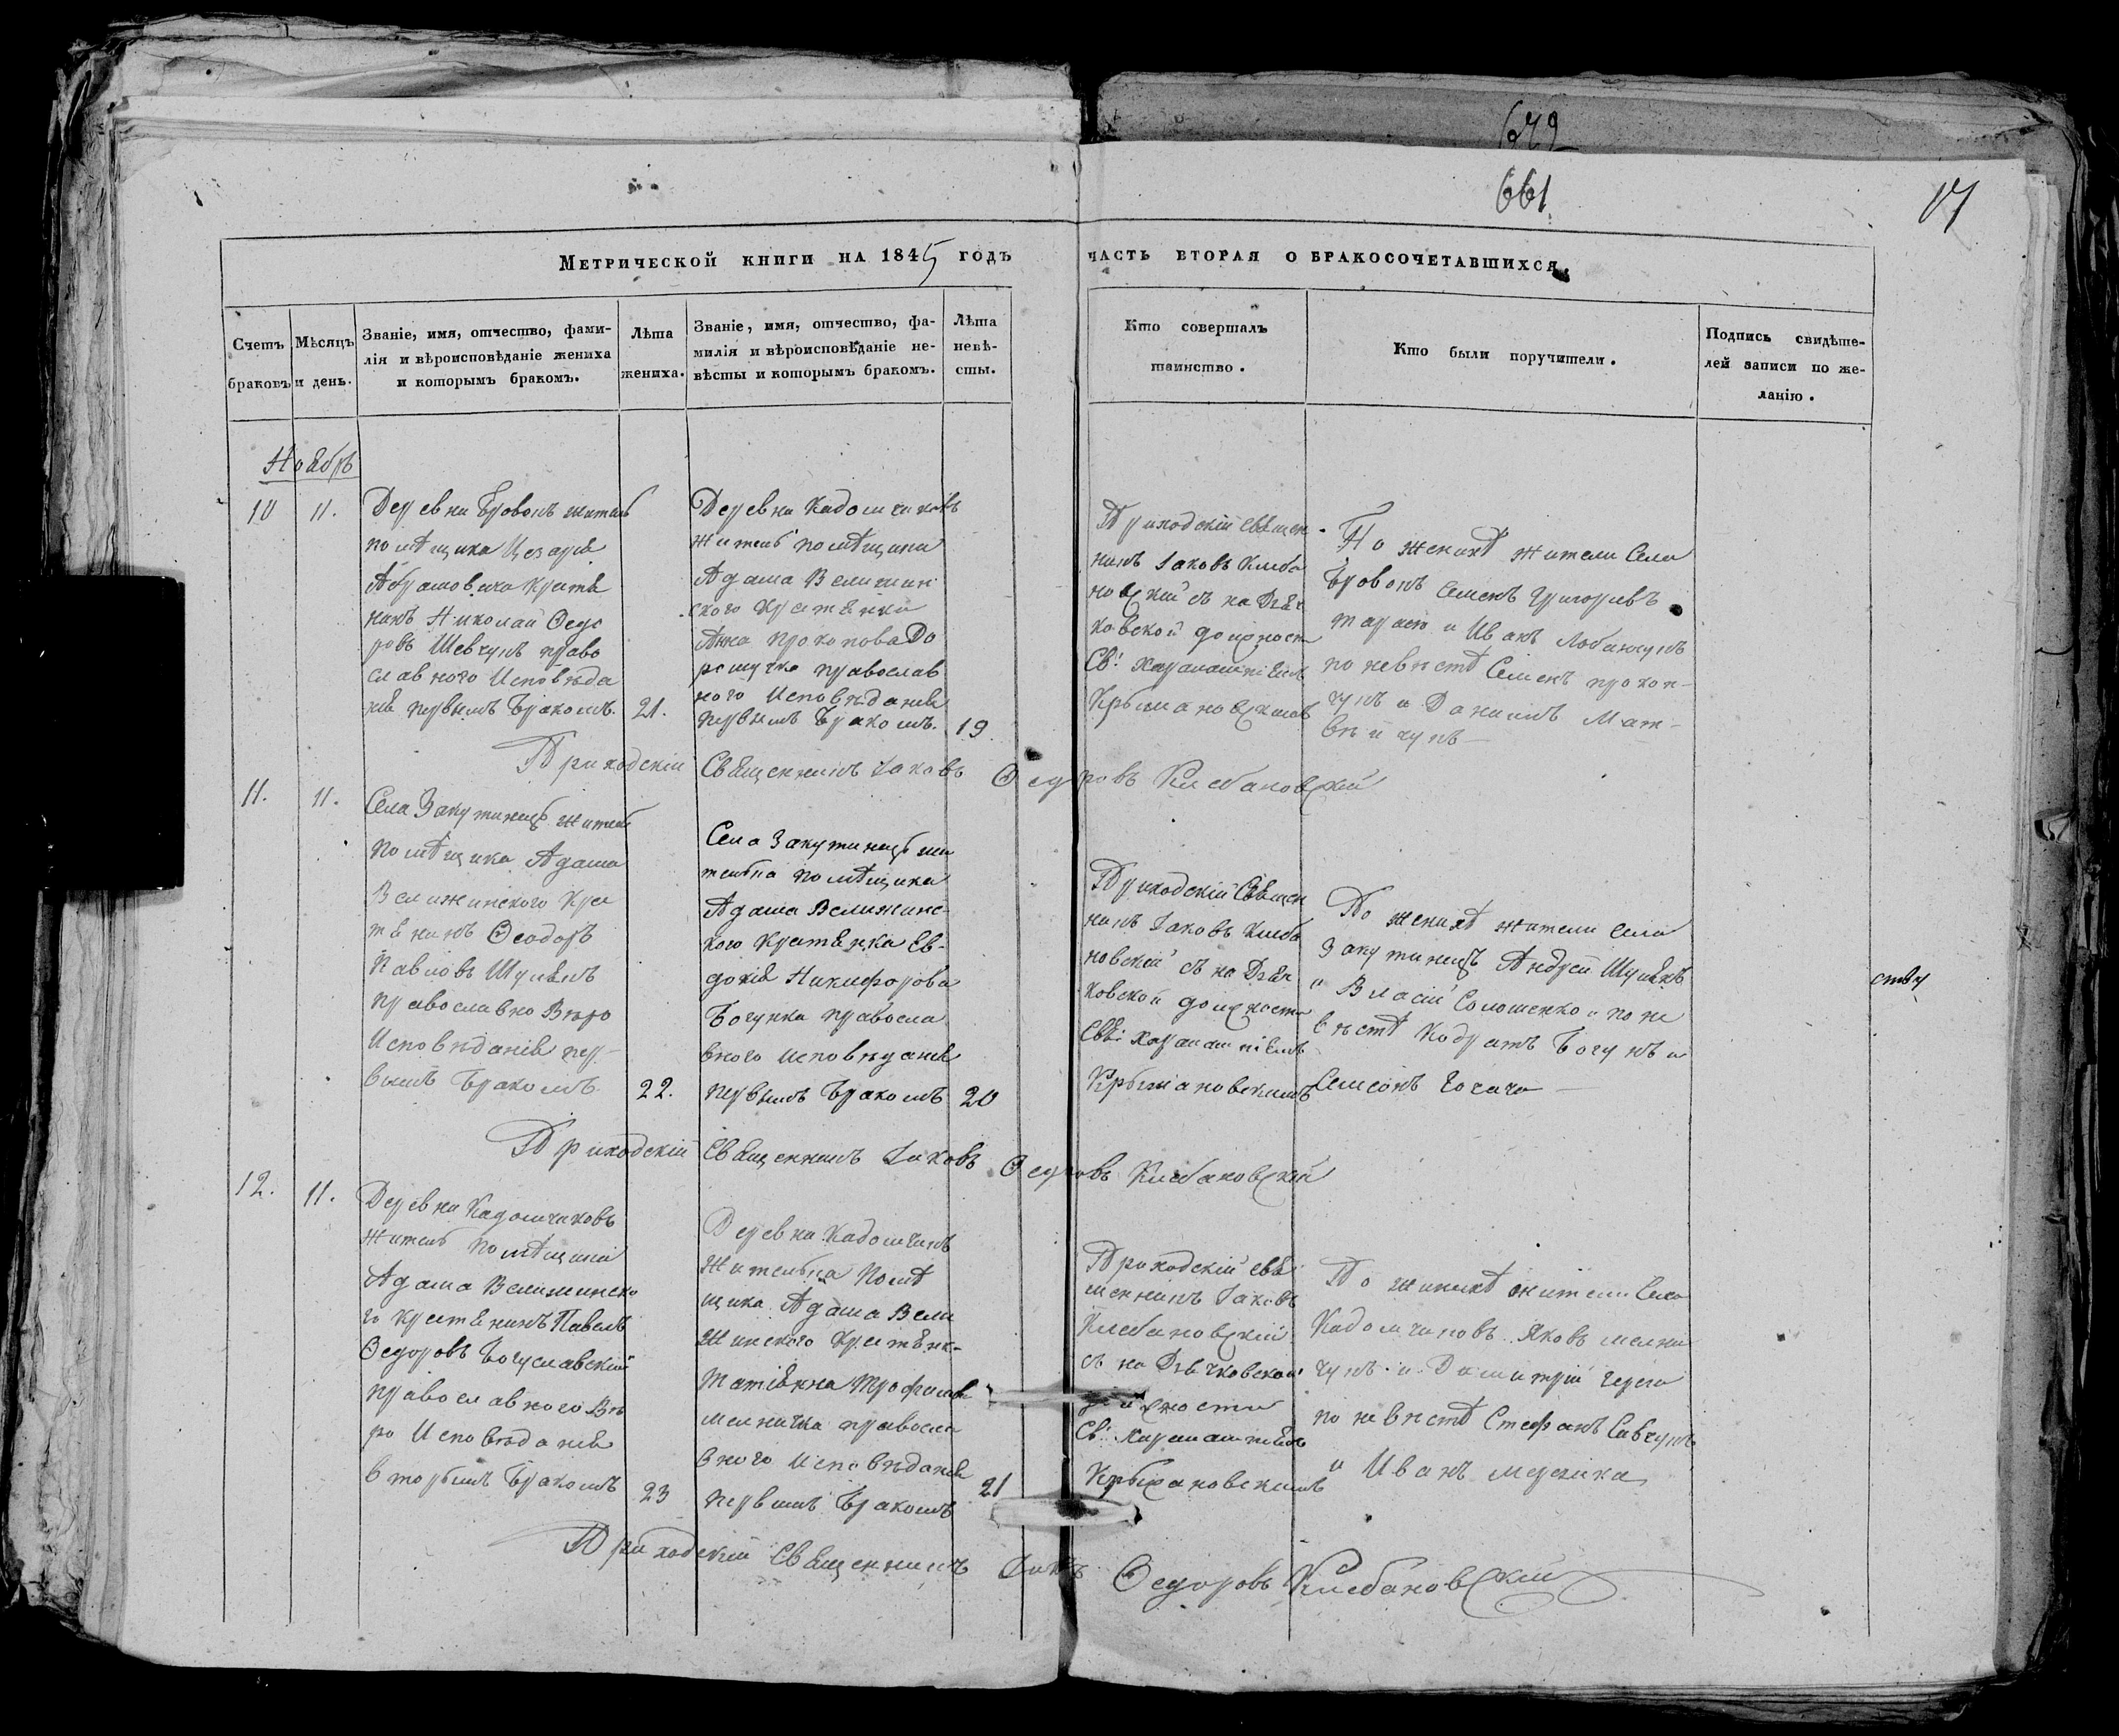 672
661
17
Метрической книги на 1845 годъ
часть вторая о бракосочетавшихся.
Счетъ
браковъ
Мѣсяцъ
и день.
Званіе, имя, отчество, фами-
лія и вѣроисповѣданіе жениха
и которымъ бракомъ.
Лѣта
жениха.
Званіе, имя, отчество, фа-
милія и вѣроисповѣданіе не-
вѣсты и которымъ бракомъ.
Лѣта
невѣ-
сты.
Кто совершалъ
таинство.
Кто были поручители.
Подпись свидѣте-
лей записи по же-
ланію.
Ноябрь
10
11.
Деревни Бровокъ житель
помѣщика Цезаря
Абрамовича крестя
нинъ Николай Ѳедо
ровъ Шевчукъ право
славного Исповѣда
нія первымъ Бракомъ.
21.
Деревни Кадомчиковъ
житель помѣщика
Адама Велижин
ского крестянка
Анна Прокопова
православ
ного Исповѣданія
первымъ Бракомъ.
19.
Приходскій Священ-
никъ Іаковъ Клеба
новскій съ на Дьяч
ковской должности
Св: Харалампіемъ
Крыжановскимъ
По женихѣ жители Села
Бровокъ Семенъ Григорьевъ
и Иванъ
по невѣстѣ Семенъ Прокоп-
чукъ и Даниилъ Мат-
вѣйчукъ
Приходскій Священникъ Іаковъ Ѳедоровъ Клебановскій
11.
11.
Села Закутинецъ житель
помѣщика Адама
Велижинского Крес
тянинъ Ѳеодоръ
Павловъ Шулякъ
православно Вѣро
Исповѣданія пер-
вымъ Бракомъ
22.
Села Закутинецъ жи
тельна помѣщика
Адама Велижинс-
кого крестянка Ев-
докія Никифорова
Богунка правосла
вного исповѣданія
первымъ Бракомъ
20
Приходскій Священ
никъ Іаковъ Клеба
новскій съ на Дьяч
ковской должности
Свя: Харалампіемъ
Крыжановскимъ
По женихѣ жители Села
Закутинецъ Андрей Шулякъ
и Власій Соломенко и по не
вѣстѣ Кодратъ Богунъ и
Семіонъ
ству
Приходскій Священникъ Іаковъ Ѳедоровъ Клебановскій
12.
11.
Деревни Кадомчиковъ
житель помѣщика
Адама Велижинско
го крестянинъ Павелъ
Ѳедоровъ Богуславскій
православного Вѣ
ро Исповѣданія
вторымъ Бракомъ
23
Деревни Кадомчикъ
жительна помѣ
щика Адама Вели
жинского крестянк-
Татіянна Трофимова
мелничка правосла
вного Исповѣданія
первымъ Бракомъ
21
Приходскій Свя
щенникъ Іаковъ
Клебановскій
съ на Дьячковской
должности
Св: Харалампіемъ
Крыжановскимъ
По женихѣ жители Села
Кадомчиковъ Яковъ мелни
чукъ и Димитрій
по невѣстѣ Стефанъ Савчукъ
и Иванъ
Приходскій Священникъ Іаковъ Ѳедоровъ Клебановскій